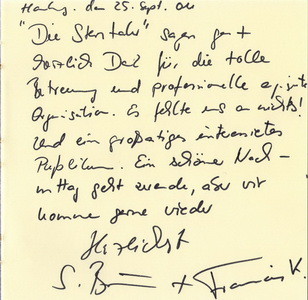 Hamburg, den 25. Sept. 04
"Die Skentahr" sagen ganz
herzlich Dank für die tolle
Betreuung und professionelle
Organisation. Es fehlte uns an nichts!
Und ein großartiges interessiertes
Publikum. Ein schöner Nach-
mittag geht zuende, aber wir
kommen gerne wieder
Herzlichst
S. B + K.